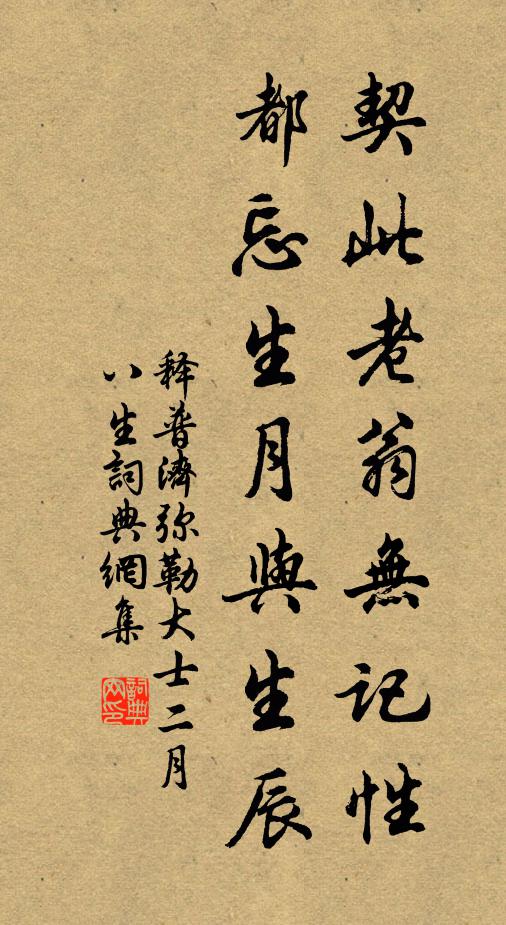 契此老翁無記性
都忘生月與生辰
释普濟弥勒大士二月
八生詞典網集
詞典
网印